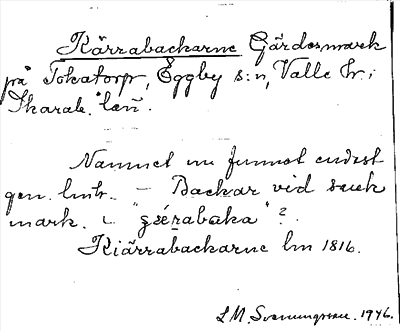 Kärrabackarne Gärdesmark
på Tokatorp, Eggby s:n, Valle hr.
Skarab. län.
Namnet nu funnet endast
gen. lmtr. – Backar vid sank
mark.
Kiärrabackarne lm 1816.
L M. Svanungsson. 1946.